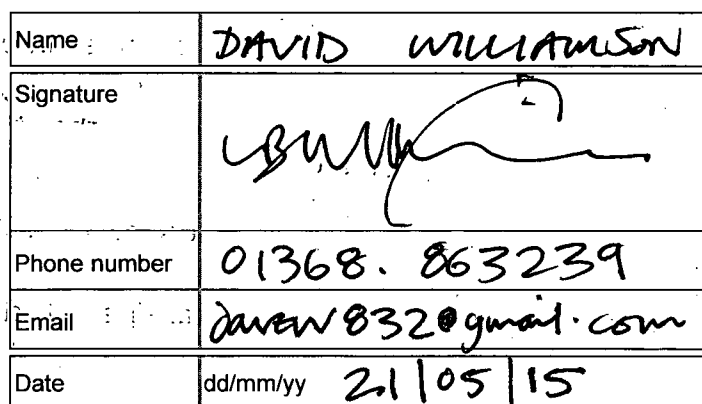 Name DAVID WILLIAMSON
Signature
Phone number 01368. 863239
Email davew832@gmail.com
Date dd/mm/yy 21/05/15